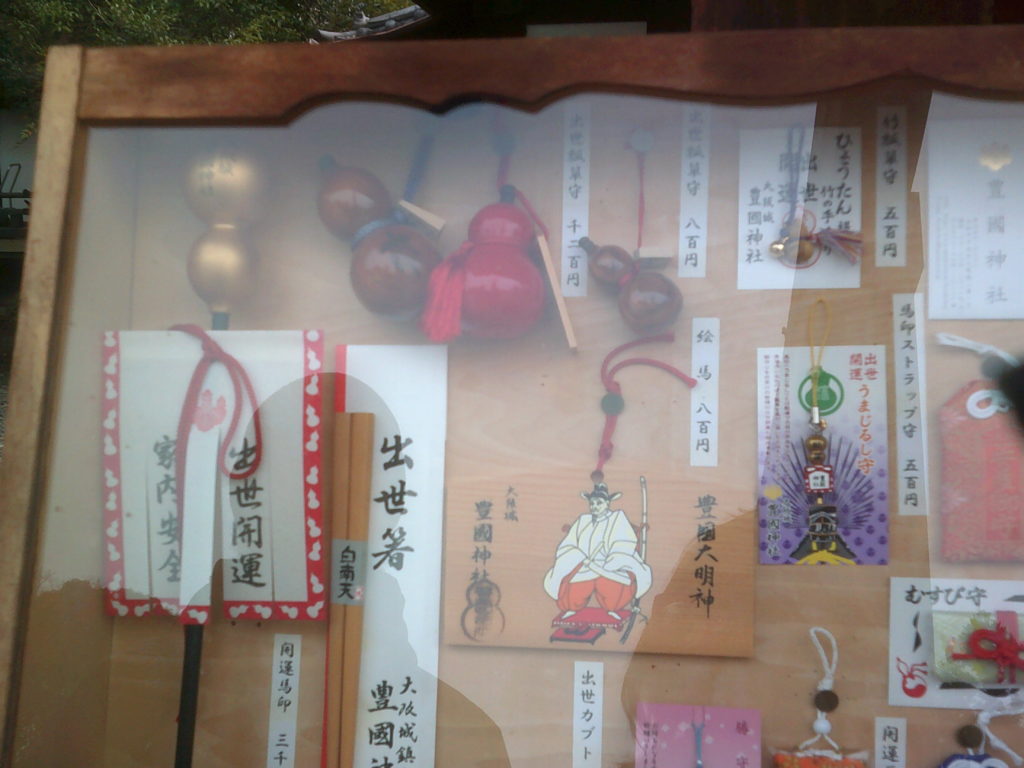 家内安全
出世開運
開運馬印 三千
白南天
出世箸
大阪城鎮
豊國
出世瓢箪守 千二百円
出世瓢箪守 八百円
ひょうたん
出世
開運
竹の手
大阪城
豊國神社
竹瓢箪守 五百円
豊國神社
絵馬 八百円
大阪城
豊國神社
豊國大明神
出世カブト
出世
開運
うまじるし守
豊國神社
馬印ストラップ守 五百円
むすび守
勝守
開運